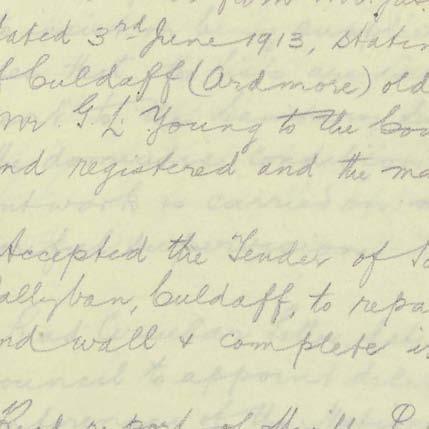 dated 3rd June 1913, statin
f Culdaff (Ardmore) old
Mr G. L. Young to the Cou
nd registered and the ma
Accepted the Tender of
allyban, Culdaff, to repa
nd wall & complete
Read report of